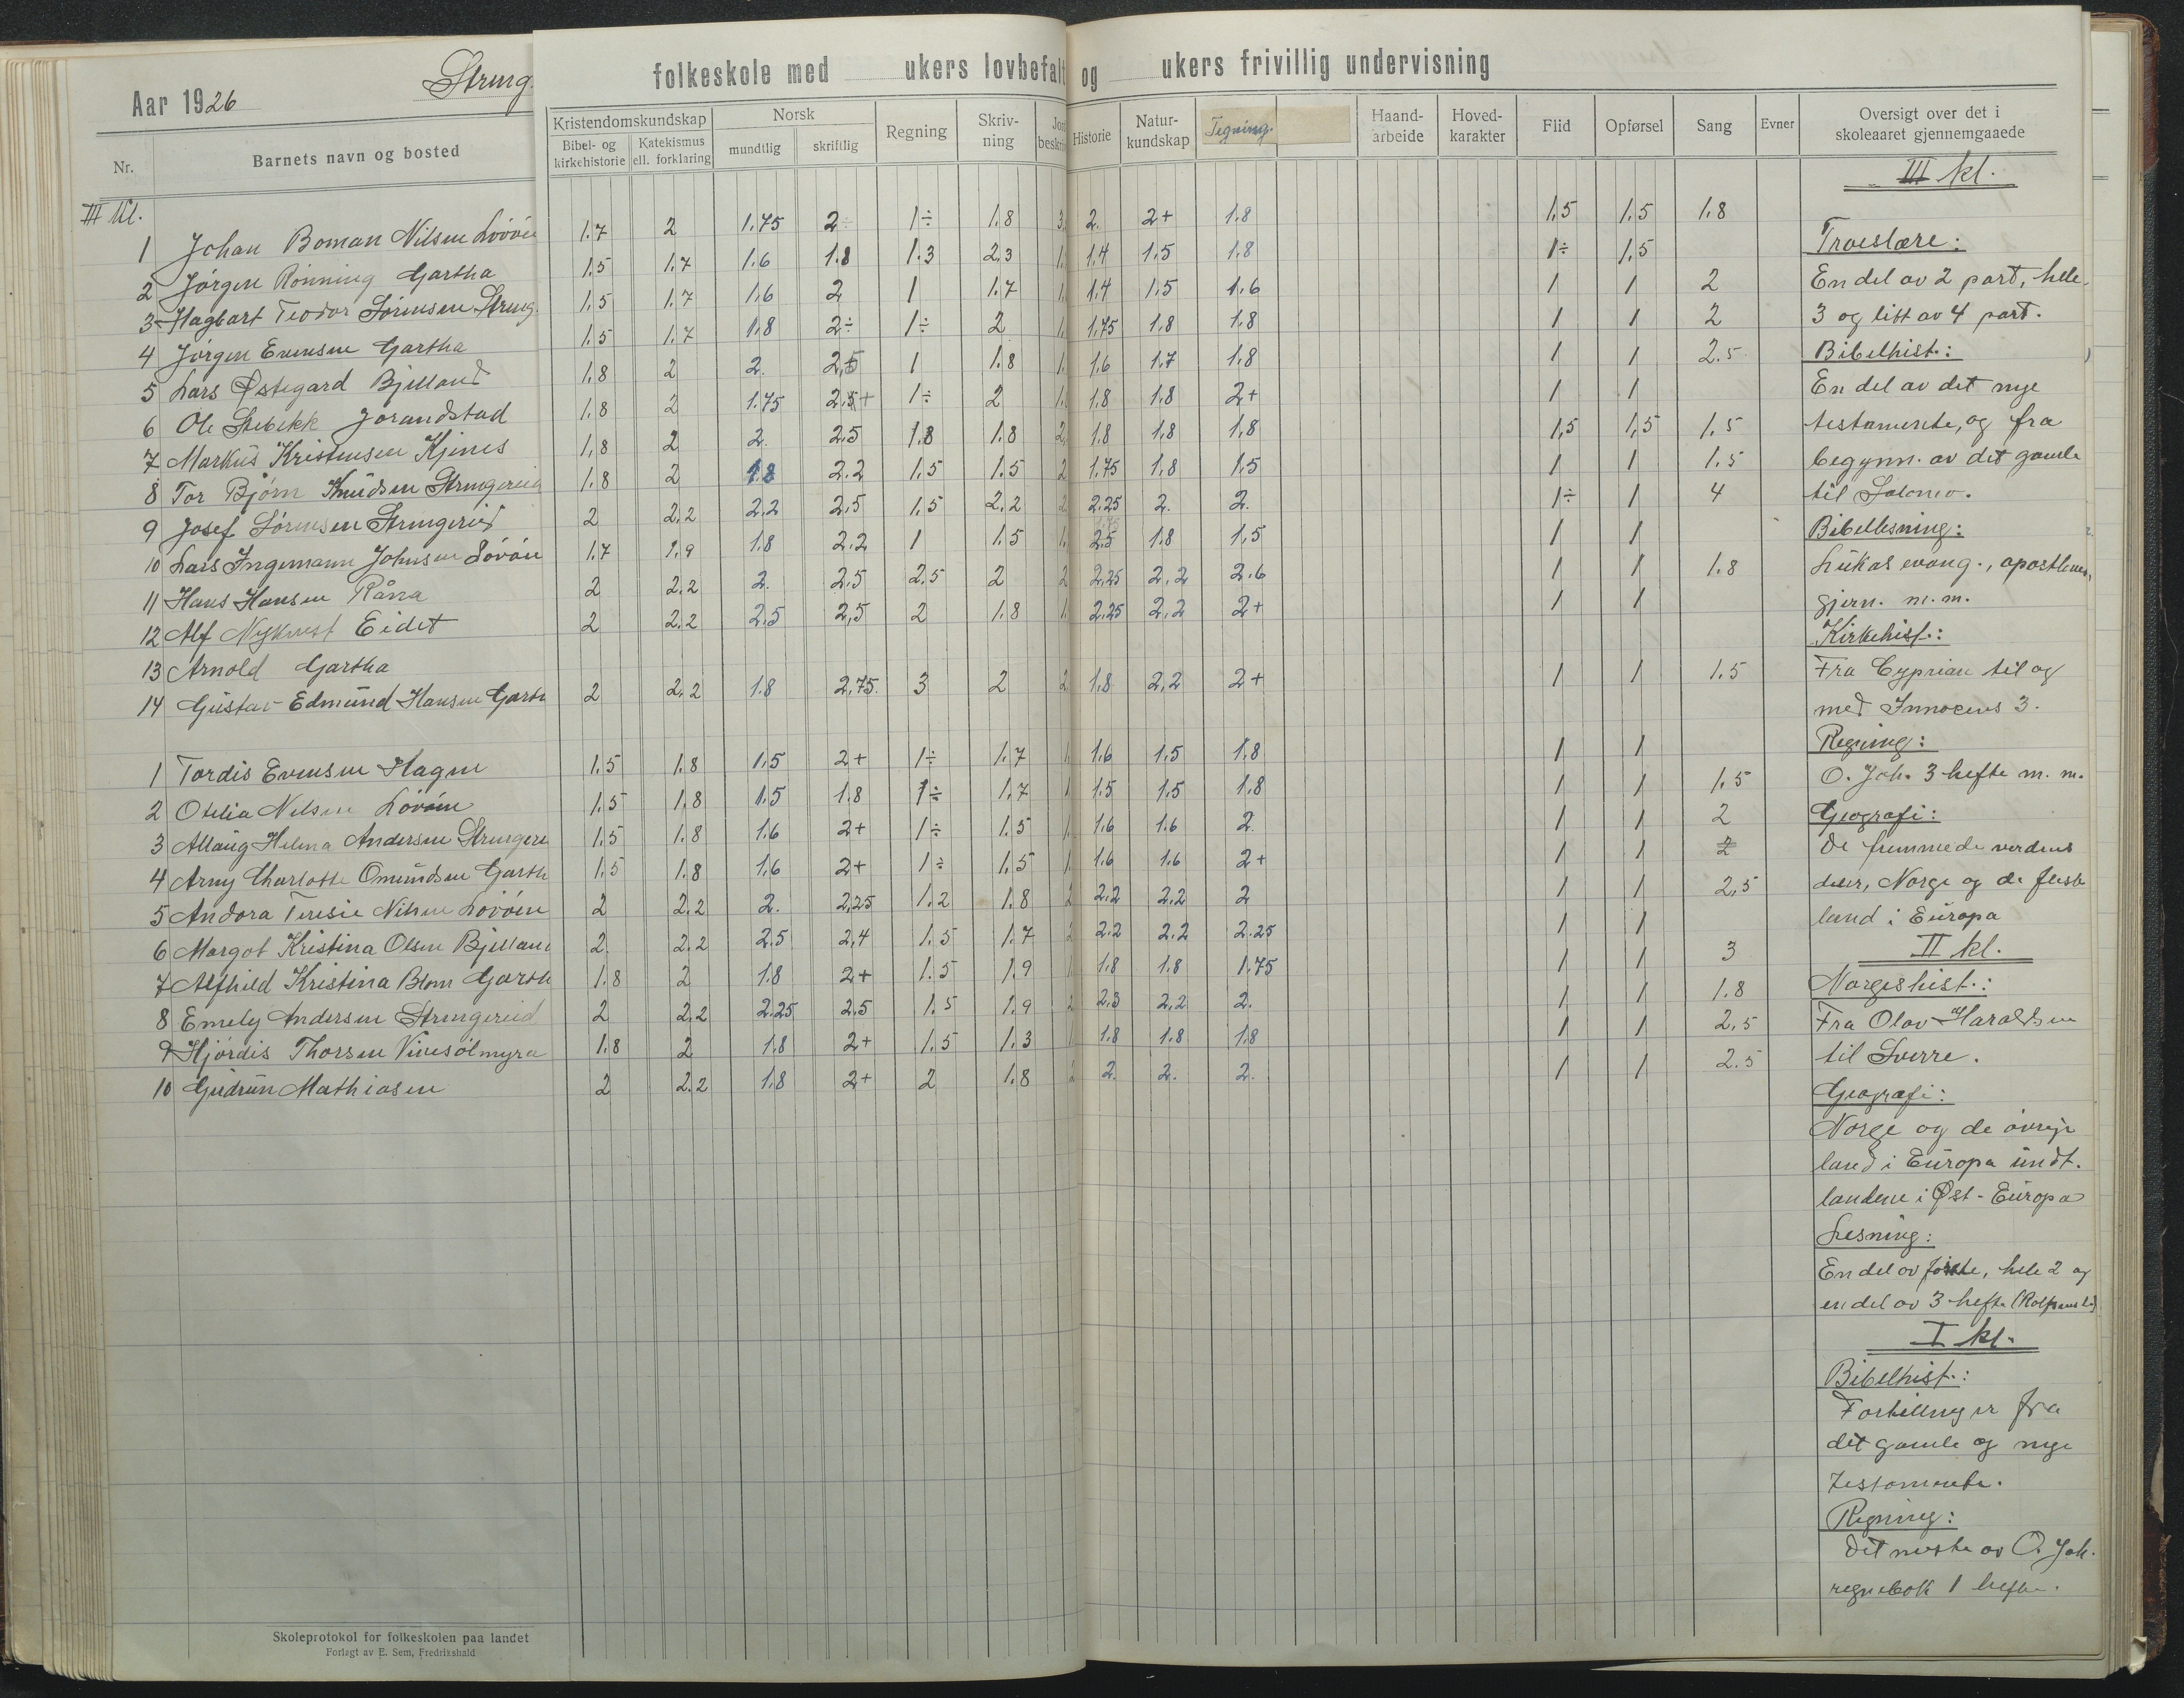 Aar 1926
folkeskole med ukers lovbefalt og ukers frivillig undervisning
Nr. Barnets navn og bosted Kristendomskundskap Bibel- og kirkehistorie Katekismus ell. forklaring Norsk mundtlig skriftlig Regning Skriv-ning Historie Natur-kundskap Tegning Haand-arbeide Hoved-karakter Flid Opførsel Sang Evner Oversigt over det i skoleaaret gjennemgaaede
III kl.
1 Johan Boman Nilsen 1.7 2 1.75 2÷ 1÷ 1.8 3. 2. 2+ 1.8 1,5 1.5 1.8
2 Jörgen Rönning Gartha 1.5 1.7 1.6 1.8 1.3 2,3 1. 1.4 1.5 1.8 1÷ 1.5
3 Hagbart Teodor Sörensen 1.5 1.7 1.6 2 1 1.7 1. 1.4 1.5 1.6 1 1 2
4 Jörgen Evensen Gartha 1.5 1.7 1.8 2÷ 1÷ 2 1. 1.75 1.8 1.8 1 1 2
5 Lars Østegard Bjelland 1.8 2 2. 2,5 1 1.8 1. 1.6 1.7 1.8 1 1 2.5
6 Ole Jorandstad 1.8 2 1.75 2.5+ 1÷ 2 1. 1.8 1.8 2+ 1 1
7 Markus Kristensen Kjenes 1,8 2 2. 2.5 1.8 1.8 2. 1.8 1.8 1,8 1,5 1,5 1.5
8 Tor Björn Knudsen 1.8 2 1.8 2.2 1.5 1.5 2 1.75 1.8 1.5 1 1 1.5
9 Josef Sörensen 2 2.2 2.2 2,5 1.5 2,2 2 2.25 2. 2. 1÷ 1 4
10 Lars Ingemann Johnsen 1.7 1.9 1.8 2.2 1 1.5 1. 2.5 1.8 1,5 1 1
11 Hans Hansen Råna 2 2.2 2. 2.5 2.5 2 2 2,25 2,2 2.6 1 1 1.8
12 Alf Nykvest Eidet 2 2.2 2.5 2,5 2 1.8 1. 2.25 2,2 2+ 1 1
13 Arnold Gartha
14 Gustav Edmund Hansen 2 2.2 1.8 2,75. 3 2 2 1.8 2,2 2+ 1 1 1.5
1 Tordis Evensen Hagen 1.5 1.8 1.5 2+ 1÷ 1.7 1. 1.6 1.5 1.8 1 1
2 Otilia Nilsen 1.5 1.8 1.5 1.8 1÷ 1.7 1 1.5 1.5 1.8 1 1 1.5
3 Allaug Helena Andersen 1.5 1.8 1.6 2+ 1÷ 1.5 1. 1.6 1.6 2. 1 1 2
4 Arny Charlotte Omundsen 1.5 1.8 1.6 2+ 1÷ 1,5 1. 1.6 1.6 2+ 1 1 2
5 Andora Teresie Nilsen 2 2.2 2. 2,25 1.2 1.8 2 2.2 2.2 2 1 1 2,5
6 Margot Kristina Olsen 2. 2.2 2.5 2,4 1.5 1.7 2 2.2 2.2 2.25 1 1
7 Alfhild Kristina Blom 1.8 2 1.8 2+ 1.5 1.9 1 1.8 1.8 1.75 1 1 3
8 Emely Andersen 2 2.2 2.25 2,5 1.5 1.9 2 2,3 2,2 2. 1 1 1.8
9 Hjördis Thorsen Vinesölmyra 1.8 2 1.8 2+ 1.5 1.3 1 1.8 1.8 1.8 1 1 2.5
10 Gudrun Mathiasen 2 2.2 1.8 2+ 2 1.8 2 2. 2. 2. 1 1 2.5
III kl.
Troeslære:
En del av 2 part, hele
3 og litt av 4 part.
Bibelhist.:
En del av det nye
testamente, og fra
begynn. av det gamle
til Salomo.
Bibellesning:
Lukas evang., apostlenes
gjern. m.m.
Kirkehist.:
Fra Cyprian til og
med Innocens 3.
Regning:
O. Joh. 3 hefte m. m.
Geografi:
De fremmede verdens
deler, Norge og de fleste
land i Europa
II kl.
Norgeshist.:
Fra Olav Haraldsen
til Sverre.
Geografi:
Norge og de øvrige
land i Europa undt.
landene i Øst-Europa
Lesning:
En del av første, hele 2 og
en del av 3 hefte
I kl.
Bibelhist.:
Fortellinger fra
det gamle og nye
testamente.
Regning:
Det meste av O. Joh.
regnebok 1 hefte.
Skoleprotokol for folkeskolen paa landet
Forlagt av E. Sem, Fredrikshald